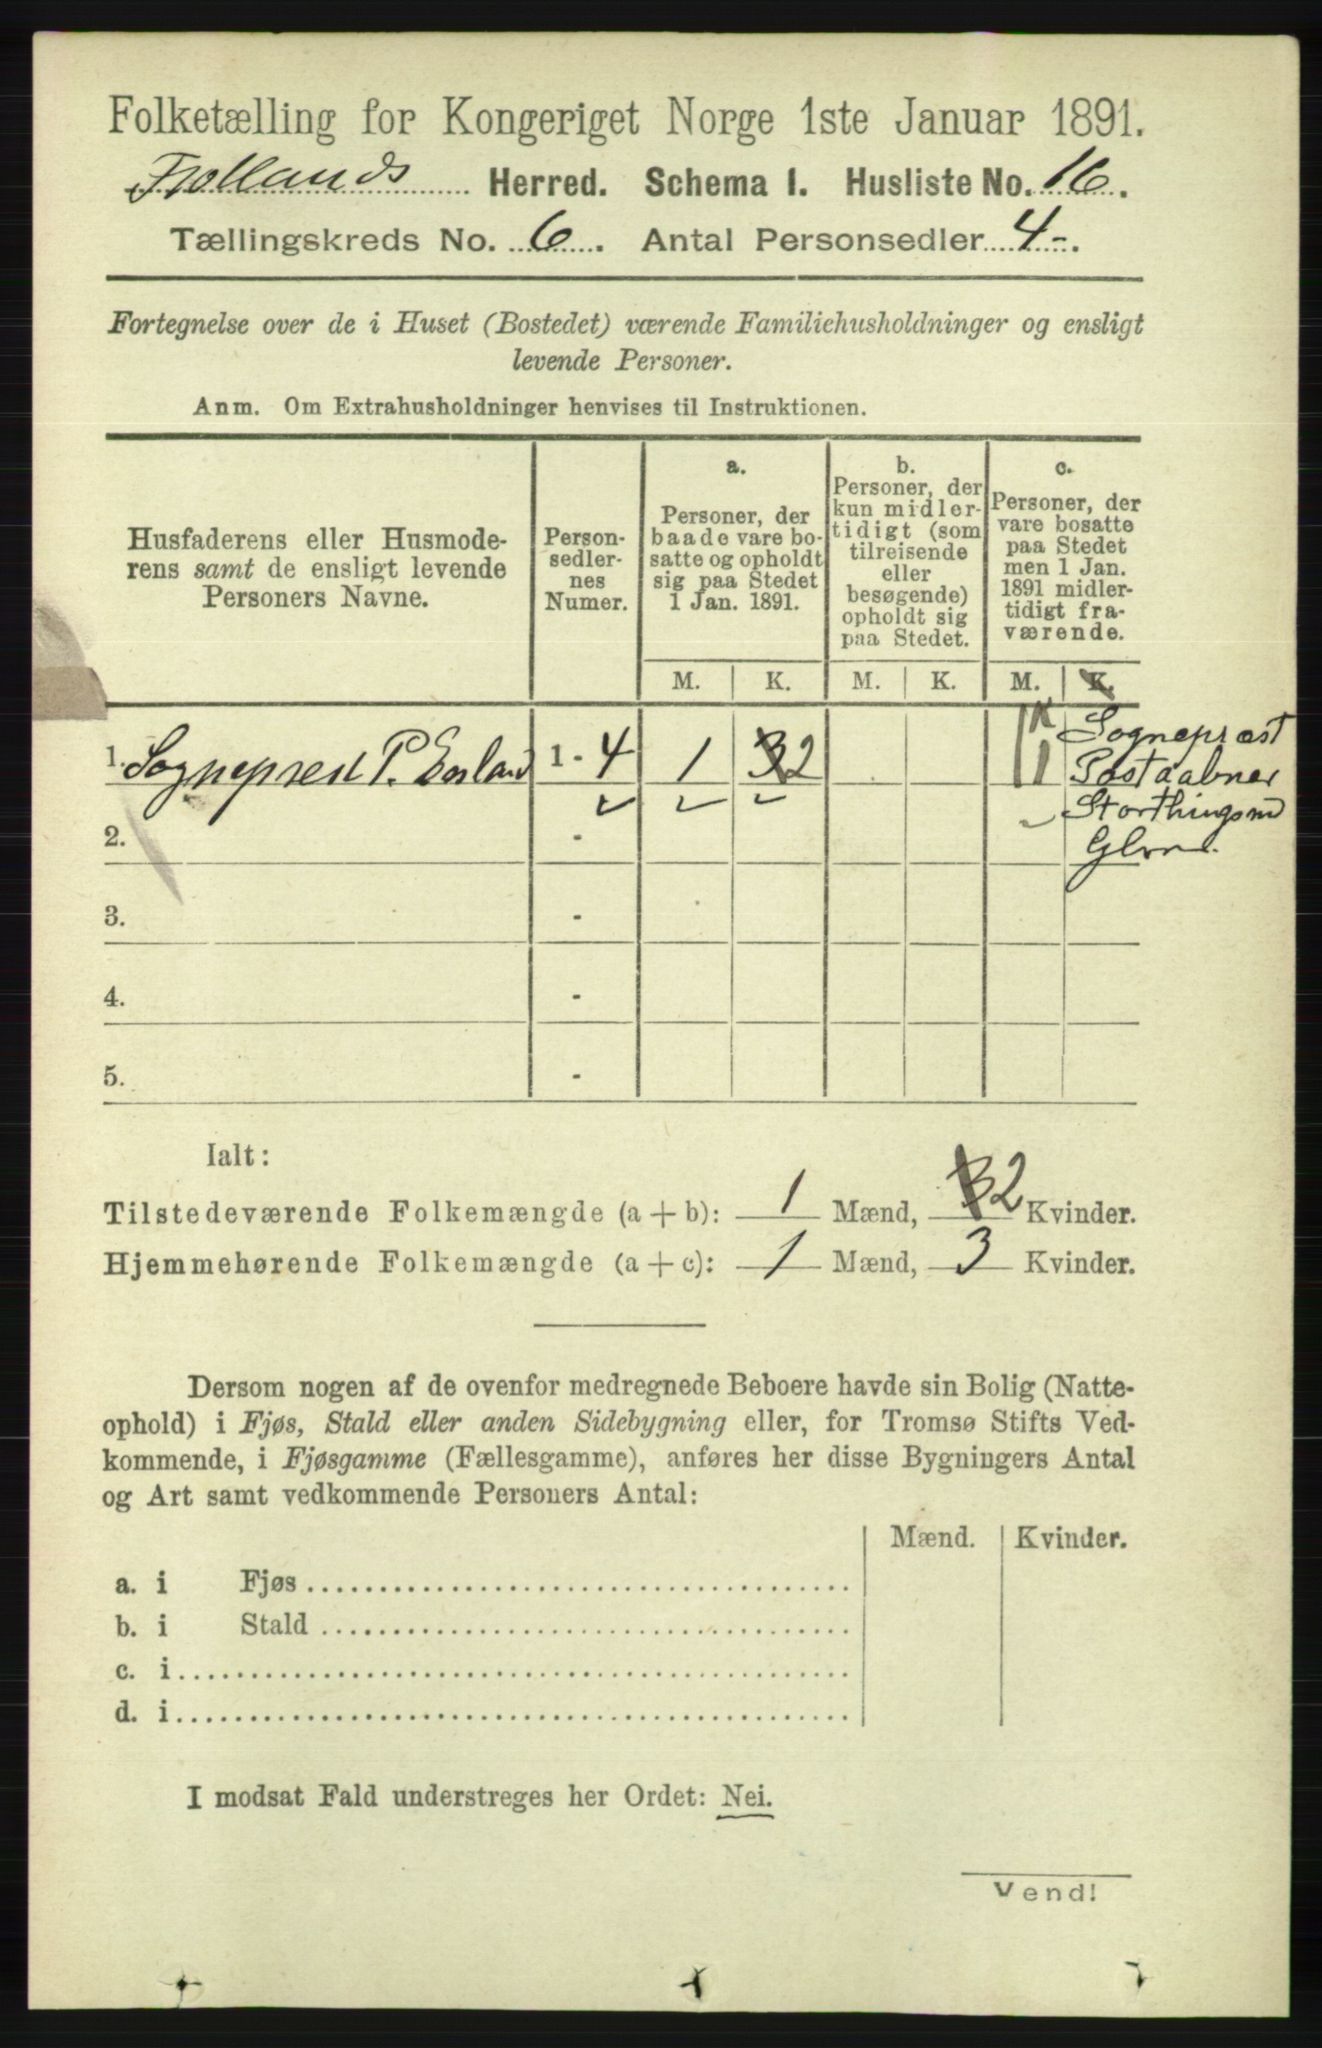 Folketælling for Kongeriget Norge 1ste Januar 1891.
Fjotlands Herred. Schema 1. Husliste No. 16.
Tællingskreds No. 6. Antal Personsedler 4-.
Fortegnelse over de i Huset (Bostedet) værende Familiehusholdninger og ensligt
levende Personer.
Anm. Om Extrahusholdninger henvises til Instruktionen.
Husfaderens eller Husmode-
rens samt de ensligt levende
Personers Navne.
Person-
sedler-
nes
Numer.
a.
Personer, der
baade vare bo-
satte og opholdt
sig paa Stedet
1 Jan. 1891.
b.
Personer, der
kun midler-
tidigt (som
tilreisende
eller
besøgende)
opholdt sig
paa Stedet.
c.
Personer, der
vare bosatte
paa Stedet
men 1 Jan.
1891 midler-
tidigt fra-
værende.
M. K. M. K. M. K.
1. Sogneprest P. 1 - 4 1 3 2 1
K
1
Sogneprest
Postaabner
Storthingsmd
2. -
3. -
4. -
5. -
Ialt:
Tilstedeværende Folkemængde (a + b): 1 Mænd, 3 2 Kvinder.
Hjemmehørende Folkemængde (a + c): 1 Mænd, 3 Kvinder.
Dersom nogen af de ovenfor medregnede Beboere havde sin Bolig (Natte-
ophold) i Fjøs, Stald eller anden Sidebygning eller, for Tromsø Stifts Ved-
kommende, i Fjøsgamme (Fællesgamme), anføres her disse Bygningers Antal
og Art samt vedkommende Personers Antal:
Mænd. Kvinder.
a. i Fjøs
b. i Stald
c. i
d. i
I modsat Fald understreges her Ordet: Nei.
Vend!